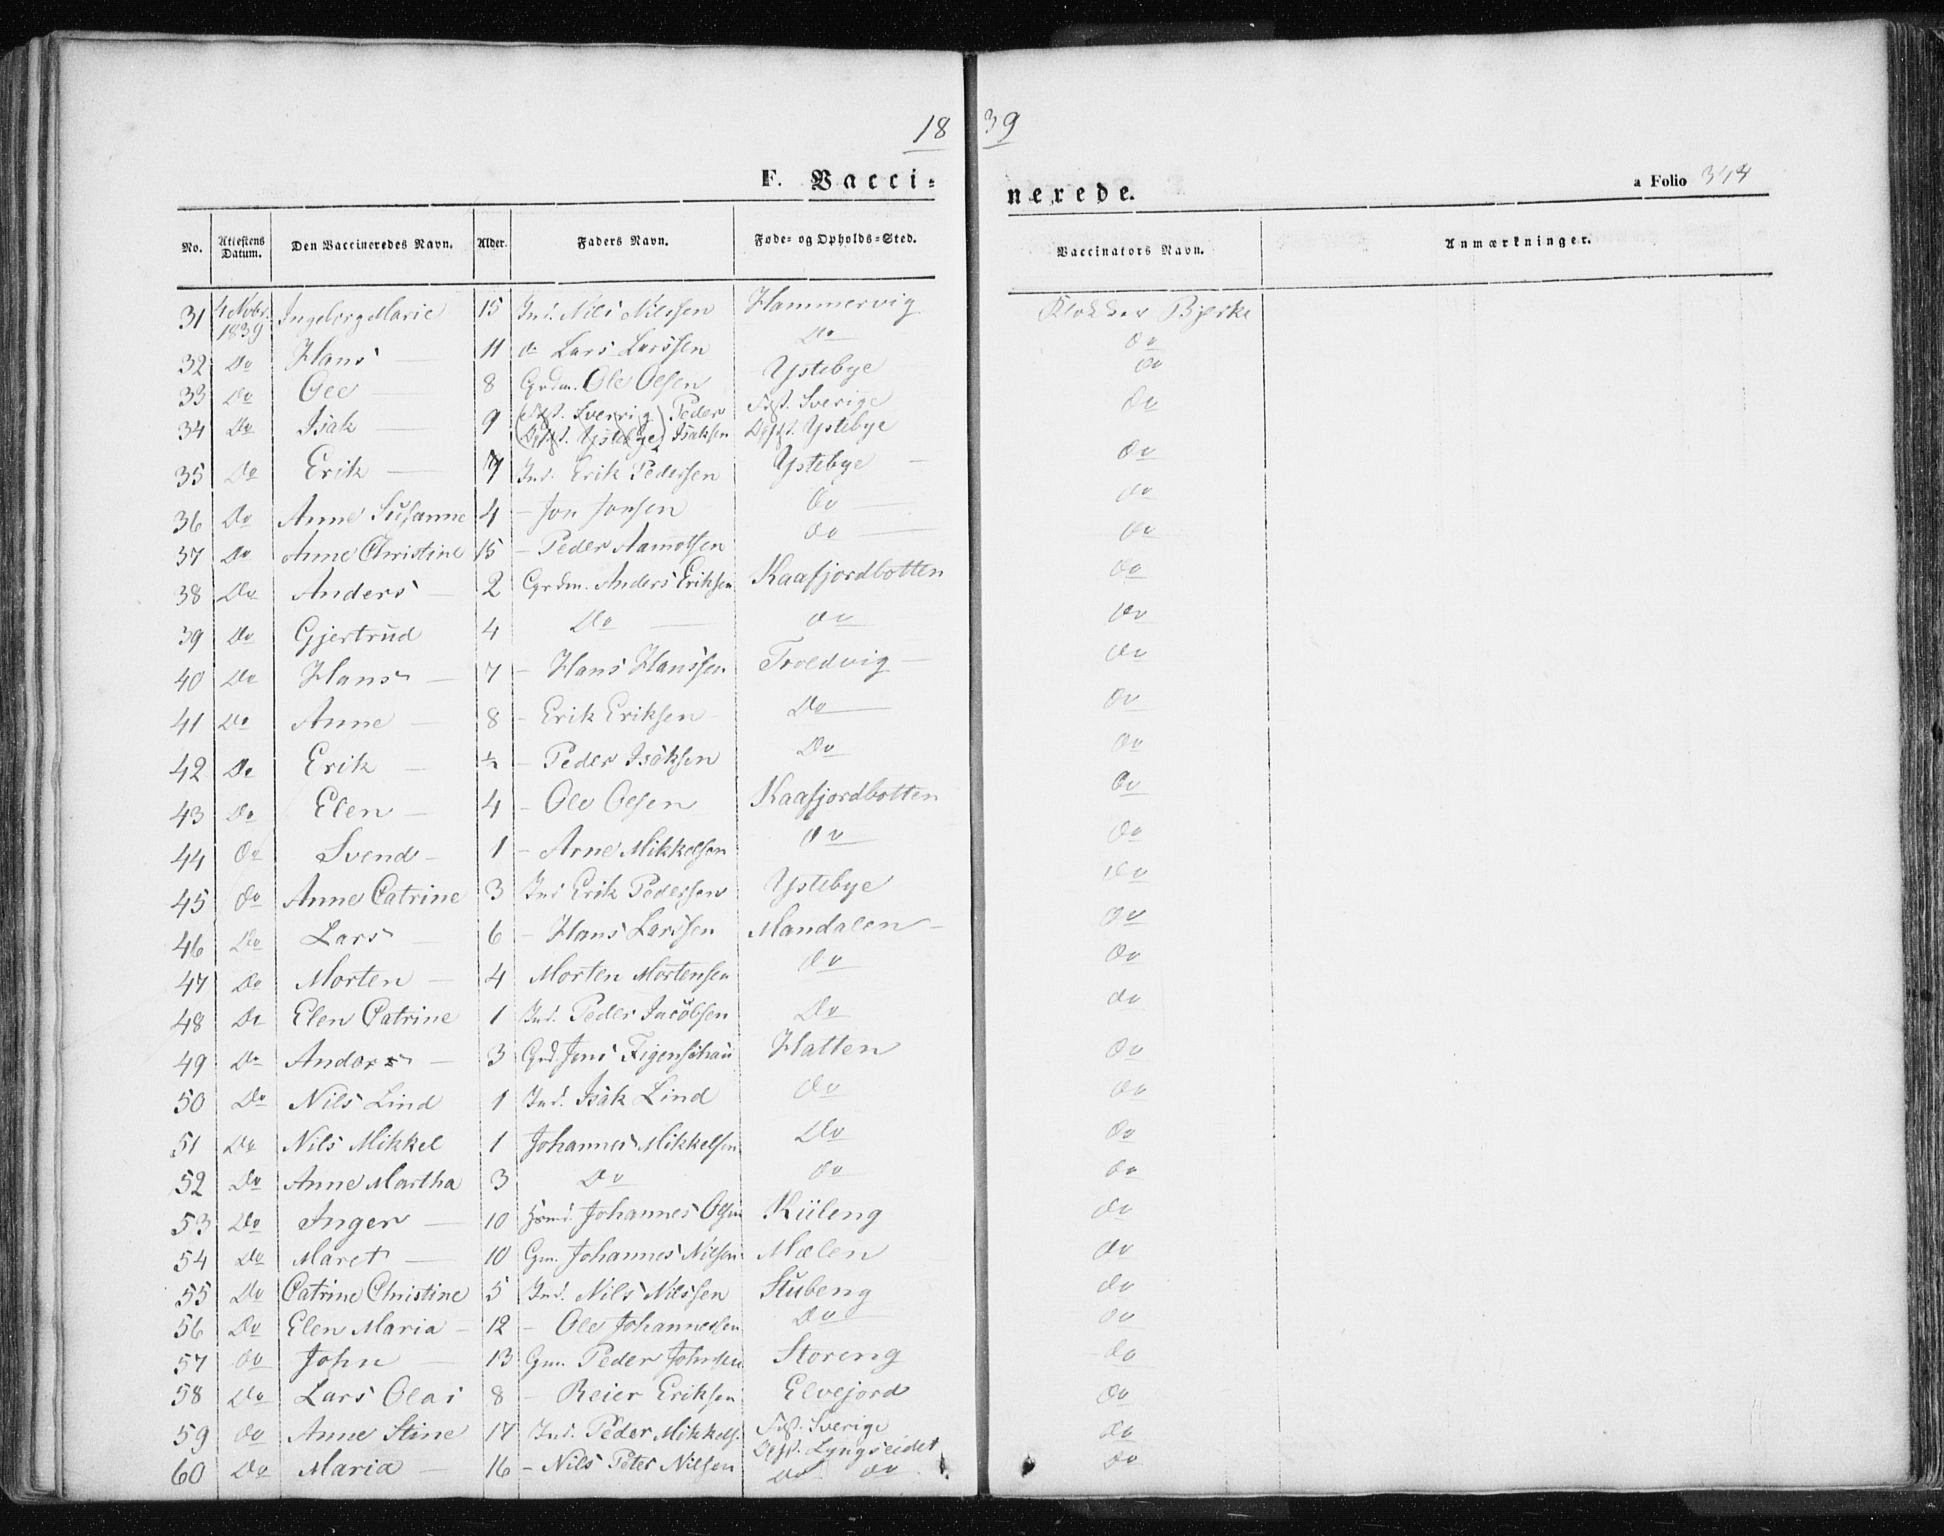 18 39
F. Vacci- nerede. a Folio 344
No. Attestens Datum. Den Vaccineredes Navn. Alder. Faders Navn. Føde- og Opholds-Sted. Vaccinators Navn. Anmærkninger.
31 4 Novbr. 1839 Ingeborg Marie 15 Ind. Nils Nilssen Hammervig Klokker Bjerke
32 Do Hans — 11 do Lars Larssen Do Do
33 Do Ole — 8 Grdm. Ole Olsen Ystebye Do
34 Do Isak — 9 (Fdst. Sverrig) Peder Fdst. Sverige Do
(Ophst. Ystebye) Isaksen Ophst. Ystebye
35 Do Erik — 7 Ind. Erik Pederssen Ystebye — Do
36 Do Anne Susanne 4 — Jon Jonsen Do — do
37 Do Anne Christine 15 — Peder Aamotsen Do — Do
38 Do Anders — 2 Grdm. Anders Eriksen Kaafjordbotten Do
39 Do Gjertrud 4 Do — Do Do
40 Do Hans — 7 — Hans Hanssen Troldvig — Do
41 Do Anne — 8 — Erik Eriksen Do Do
42 Do Erik — ½ — Peder Isaksen Do Do
43 Do Elen — 4 — Ole Olsen Kaafjordbotten Do
44 Do Svend — 1 — Arne Mikkelsen Do Do
45 do Anne Catrine 3 Ind Erik Pederssen Ystebye Do
46 Do Lars — 6 — Hans Larssen Mandalen — Do
47 Do Morten — 4 Morten Mortensen Do Do
48 Do Elen Catrine 1 Ind. Peder Jacobsen Do do
49 Do Anders — 3 Grd. Jens Figenschau Hatten Do
50 Do Nils Lind 1 Ind. Isak Lind Do Do
51 Do Nils Mikkel 1 Johannes Mikkelsen Do Do
52 Do Anne Martha 3 Do Do Do
53 Do Inger — 10 Hsmd. Johannes Olsen Kiileng do
54 Do Maret — 10 Gm. Johannes Nilsen Mælen do
55 Do Catrine Christine 5 Ind. Nils Nilssen Stubeng do
56 Do Elen Maria — 12 — Ole Johannessen Do Do
57 Do John — 13 Gm. Peder Johnsen Storeng do
58 Do Lars Olai 8 — Reier Eriksen Elvejord Do
59 Do Anne Stine 17 Ind. Peder Mikkels. Fdst. Sverige Do
Ophst. Lyngseidet
60 Do Maria — 16 — Nils Peter Nilsen Do Do Do